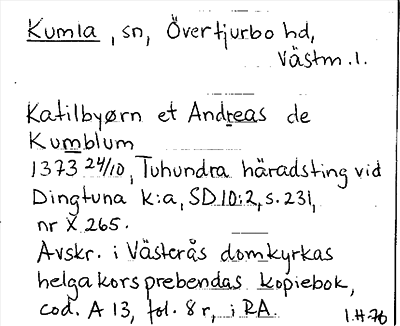 Kumla, sn, Övertjurbo hd,
Västm. l.
Katilbyørn et Andreas de
Kumblum
1373 24/10, Tuhundra häradsting vid
Dingtuna k:a, SD 10:2, s. 231,
nr X 265.
Avskr. i Västerås domkyrkas
helga kors prebendas kopiebok,
cod. A 13, fol. 8 r, i RA.
I.H-76